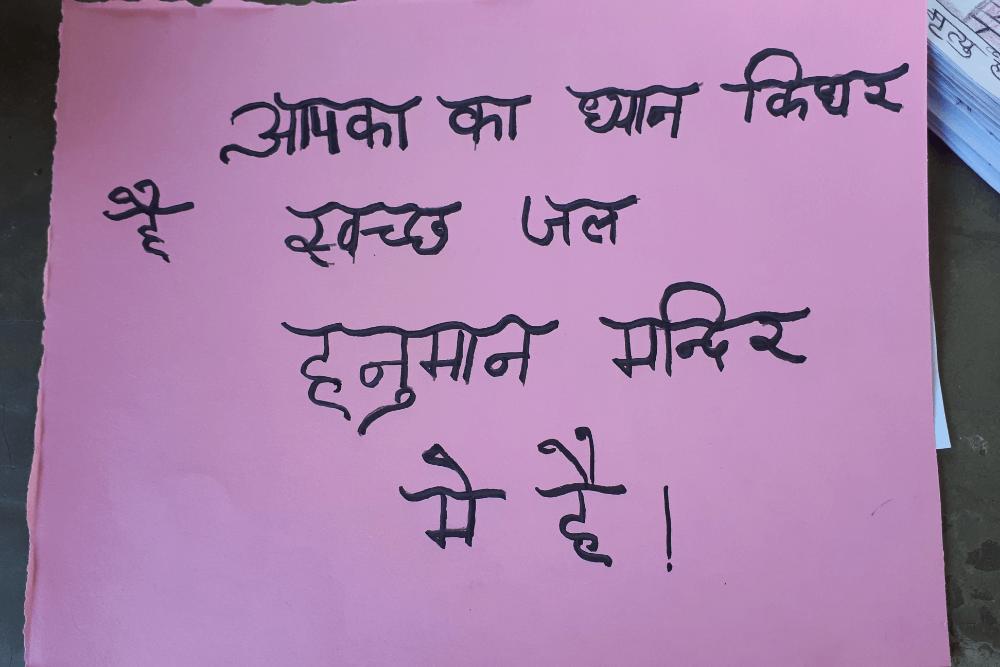 आपका का ध्यान किधर
है स्वच्छ जल
हनुमान मन्दिर
मे है।